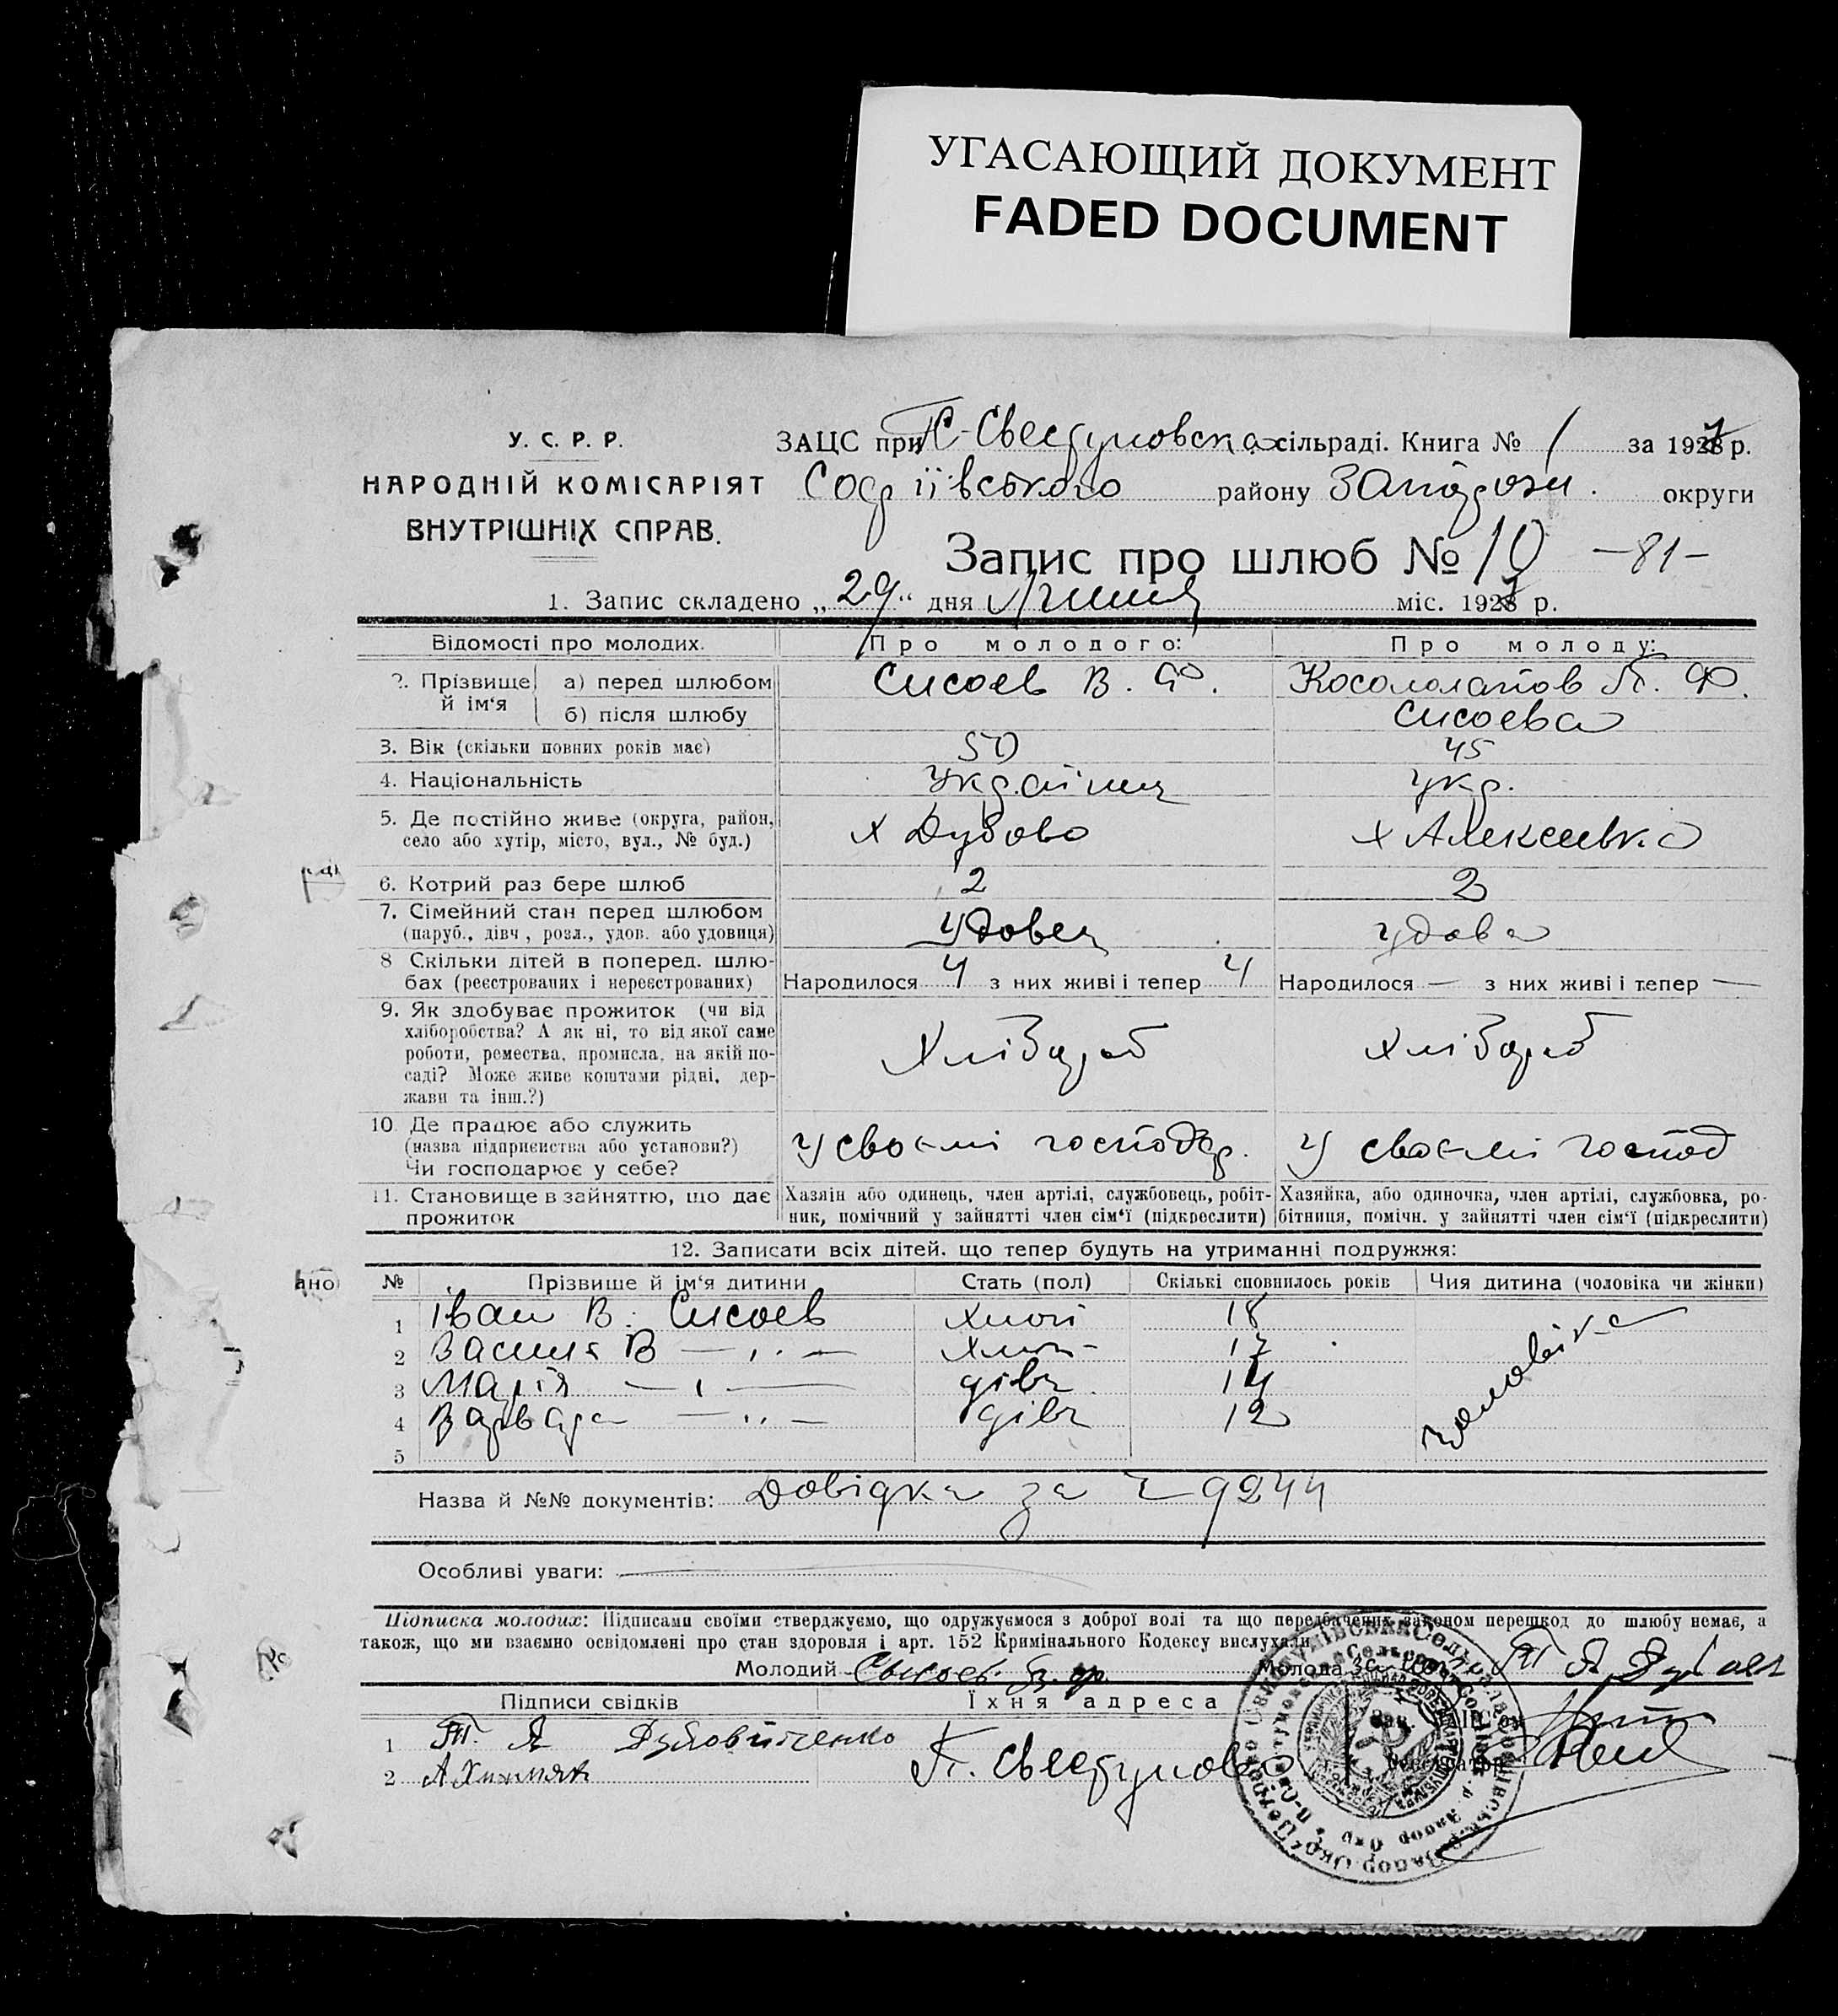 УГАСАЮЩИЙ ДОКУМЕНТ
FADED DOCUMENT
У. С. Р. Р.
НАРОДНІЙ КОМІСАРІЯТ
ВНУТРІШНІХ СПРАВ.
ЗАЦС при П-Свестуновска сільраді. Книга № 1 за 1927 р.
Софіївського району Запоріж. округи
Запис про шлюб № 10 -81-
1. Запис складено „29" дня Липня міс. 1927 р.
Відомості про молодих. Про молодого: Про молоду:
2. Прізвище й ім‘я а) перед шлюбом Сисоев В. Ф. Косолапов П. Ф.
б) після шлюбу Сисоева
3. Вік (скільки повних років має) 50 45
4. Національність Українец укр.
5. Де постійно живе (округа, район, село або хутір, місто, вул., № буд.) х Дубово х Алексеевка
6. Котрий раз бере шлюб 2 2
7. Сімейний стан перед шлюбом (паруб., дівч., розл., удов. або удовиця) Удовец удова
8 Скільки дітей в поперед. шлюбах (реєстрованих і нереєстрованих) Народилося 4 з них живі і тепер 4 Народилося — з них живі і тепер —
9. Як здобуває прожиток (чи від
хліборобства? А як ні, то від якої саме
роботи, ремества, промисла, на якій по-
саді? Може живе коштами рідні, дер-
жави та інш.?) Хлібороб Хлібороб
10. Де працює або служить
(назва підприємства або установи?)
Чи господарює у себе? У своємі господар. У своємі господ
11. Становище в зайняттю, що дає прожиток
Хазяїн або одинець, член артілі, службовець, робіт-
ник, помічний у зайнятті член сім‘ї (підкреслити)
Хазяйка, або одиночка, член артілі, службовка, ро-
бітниця, помічн. у зайнятті член сім‘ї (підкреслити)
12. Записати всіх дітей, що тепер будуть на утриманні подружжя:
ано
№ Прізвище й ім‘я дитини Стать (пол) Скількі сповнилось років Чия дитина (чоловіка чи жінки)
1 Іван В. Сисоев хлоп 18 чоловіка
2 Василь В — ,, — хлоп- 17
3 Марія — ,, — дівч. 14
4 Варвара — ,, — дівч 12
5
Назва й №№ документів: Довідка за ч 9244
Особливі уваги:
Підписка молодих: Підписами своїми стверджуємо, що одружуємося з доброї волі та що передбачених законом перешкод до шлюбу немає, а
також, що ми взаємно освідомлені про стан здоровля і арт. 152 Кримінального Кодексу вислухали
Молодий Сысоев Молода
Підписи свідків Їхня адреса
Зав. ЗАЦС'ом
1 Т. Я Дубовиченко
2 А П. Свестуново
Реєстратор